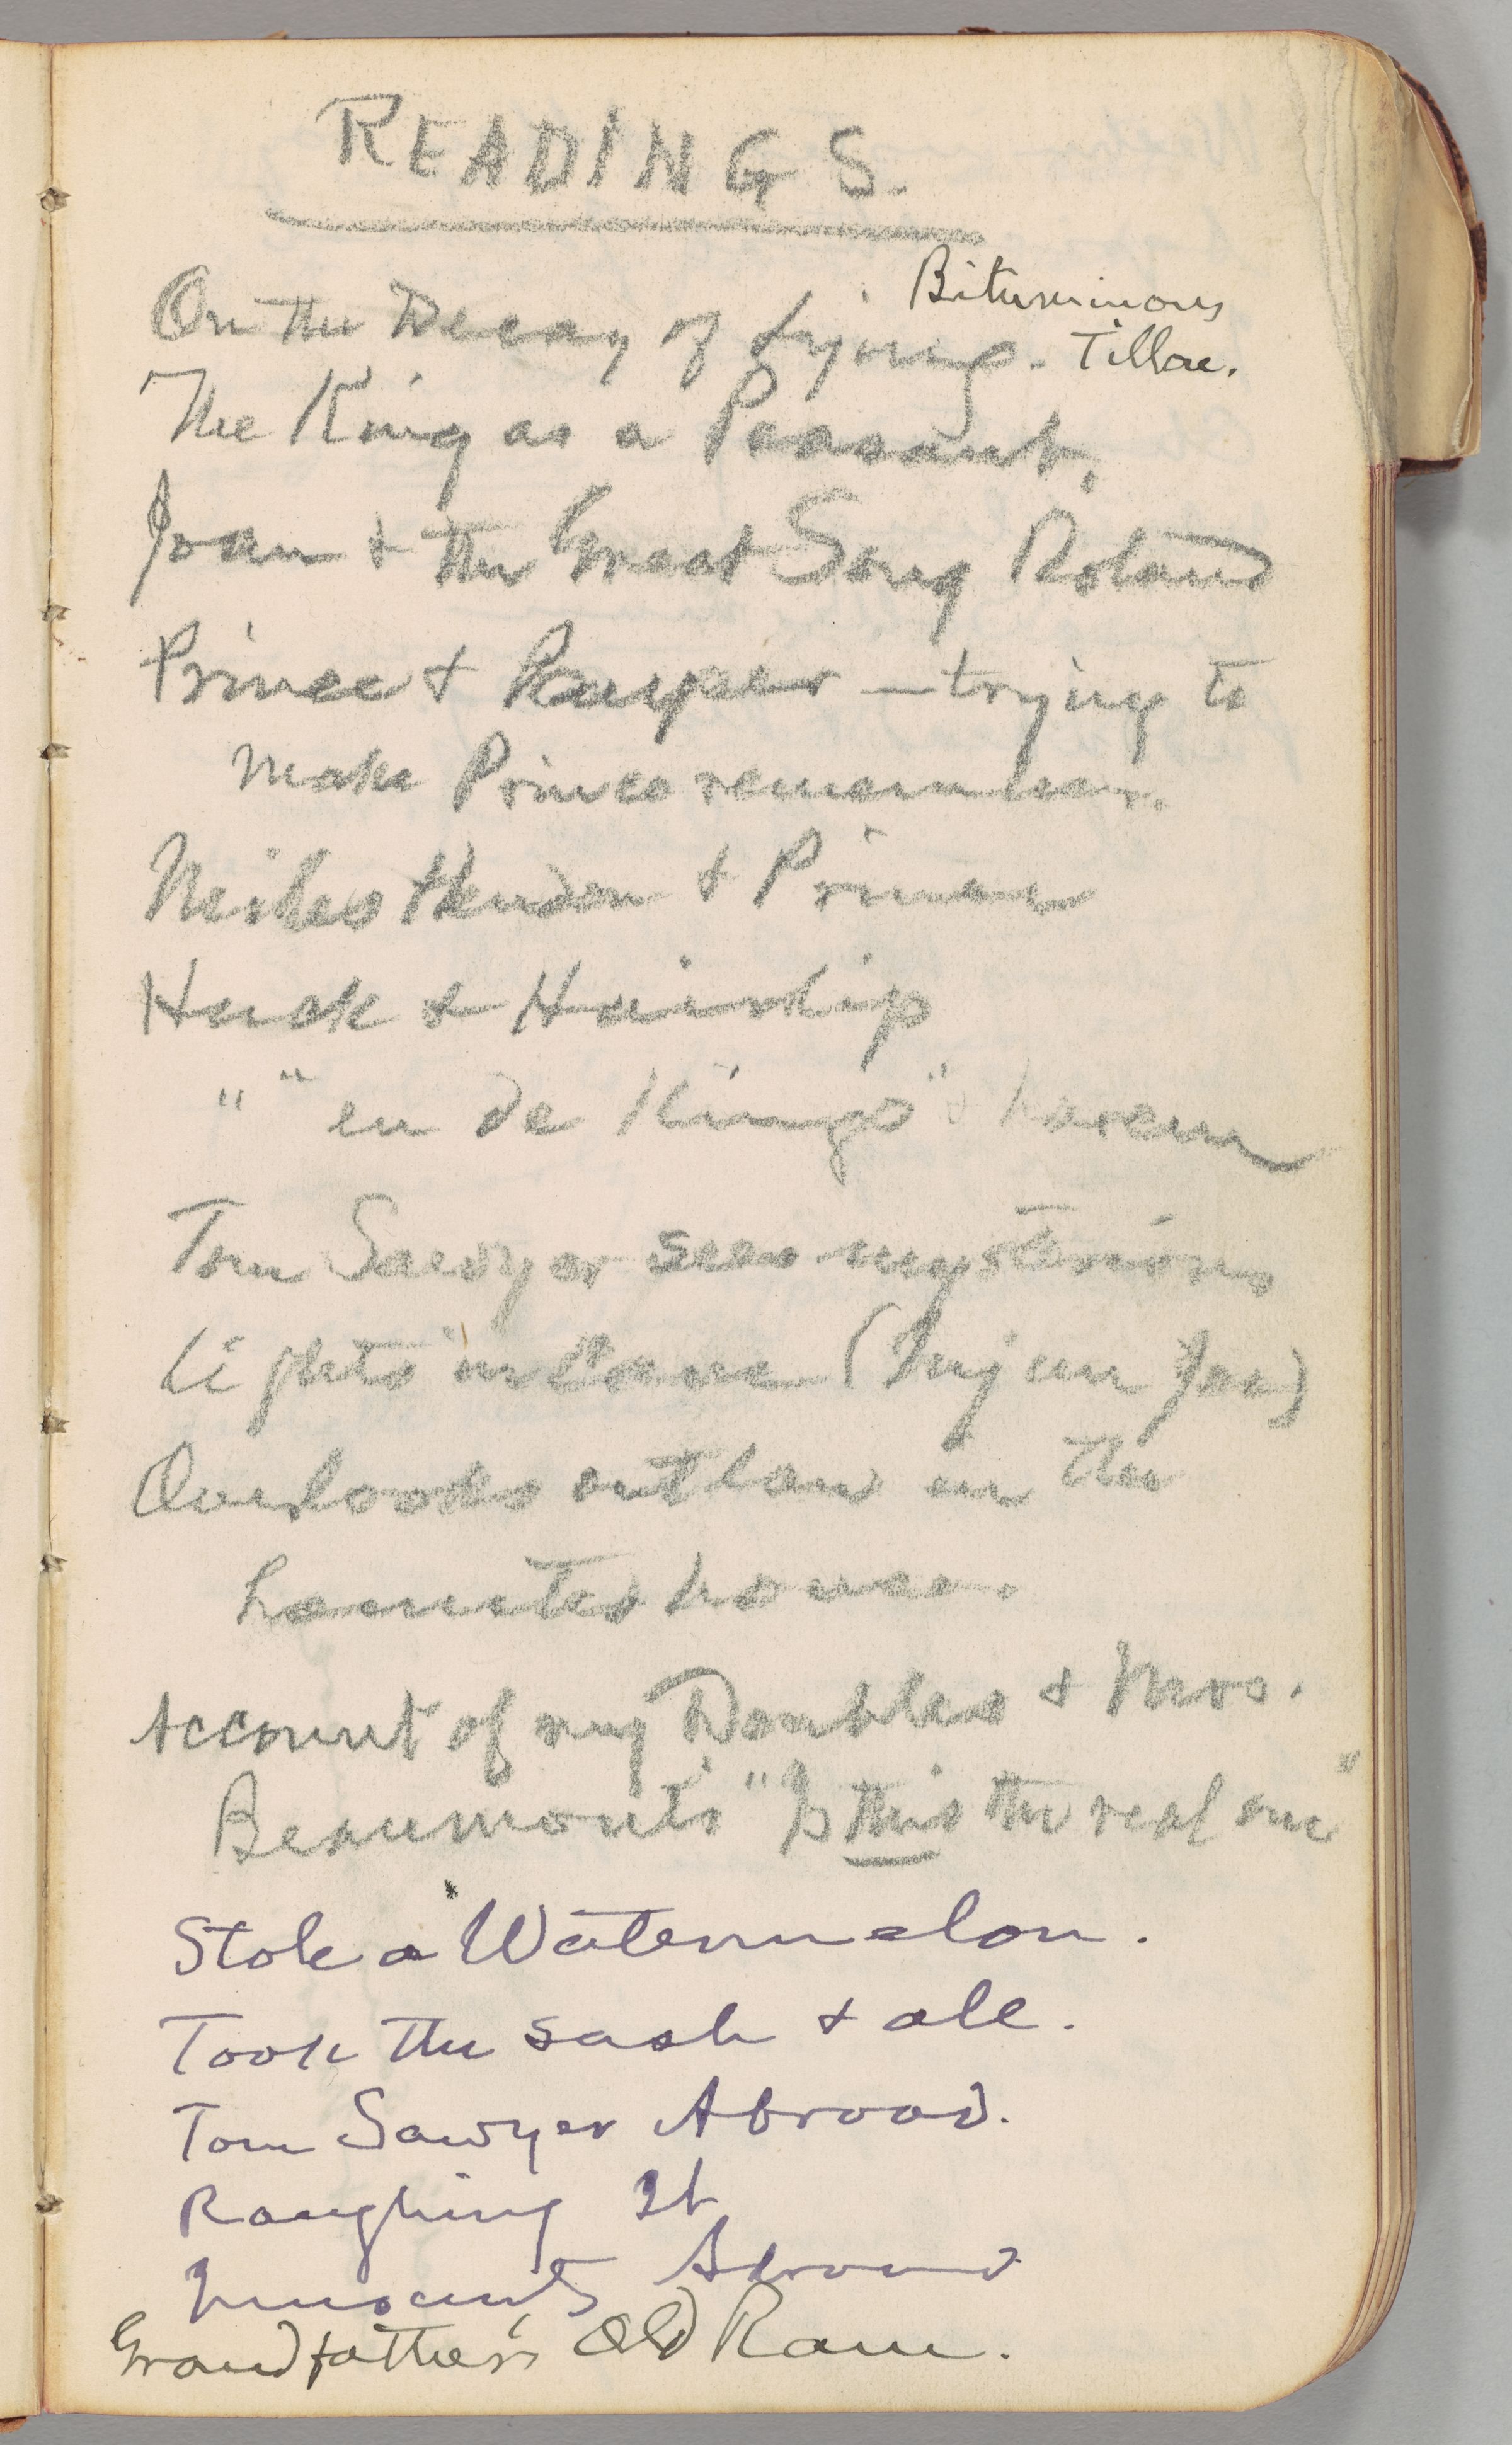 READINGS.
Bituminous
On the Decay of Lying. - Tillae.
The King as a Peasant.
Joan & the Great Song Roland
Prince & Pauper — trying to
make Prince remember.
Miles Hendon & Prince
Huck & Hairlip
" " en de Kings" & harem
Tom Sawyer sees mysterious
lights in Cave (Injun Joe)
Overlooks outlaw in the
haunted house.
Account of my Doubles & Mrs.
Beaumont's "Is this the real one"
Stole a Watermelon.
Took the sash & all.
Tom Sawyer Abroad.
Roughing It
Innocents Abroad
Grandfather's Old Ram.